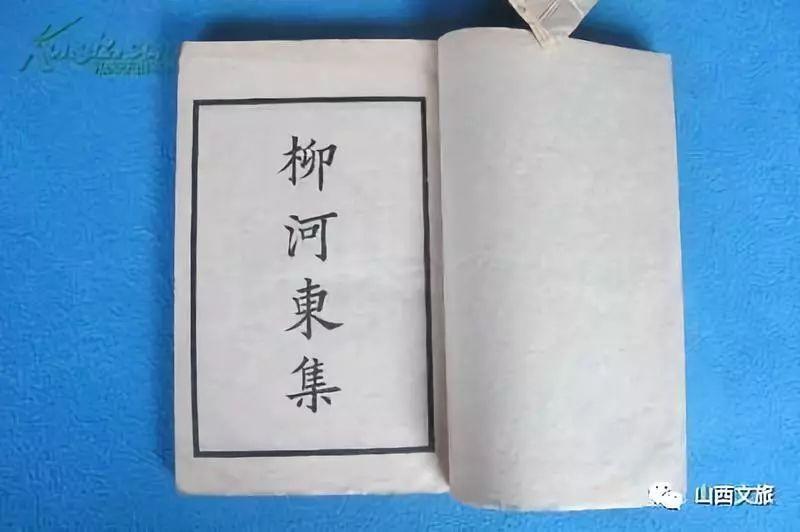 柳河東集
山西文旅